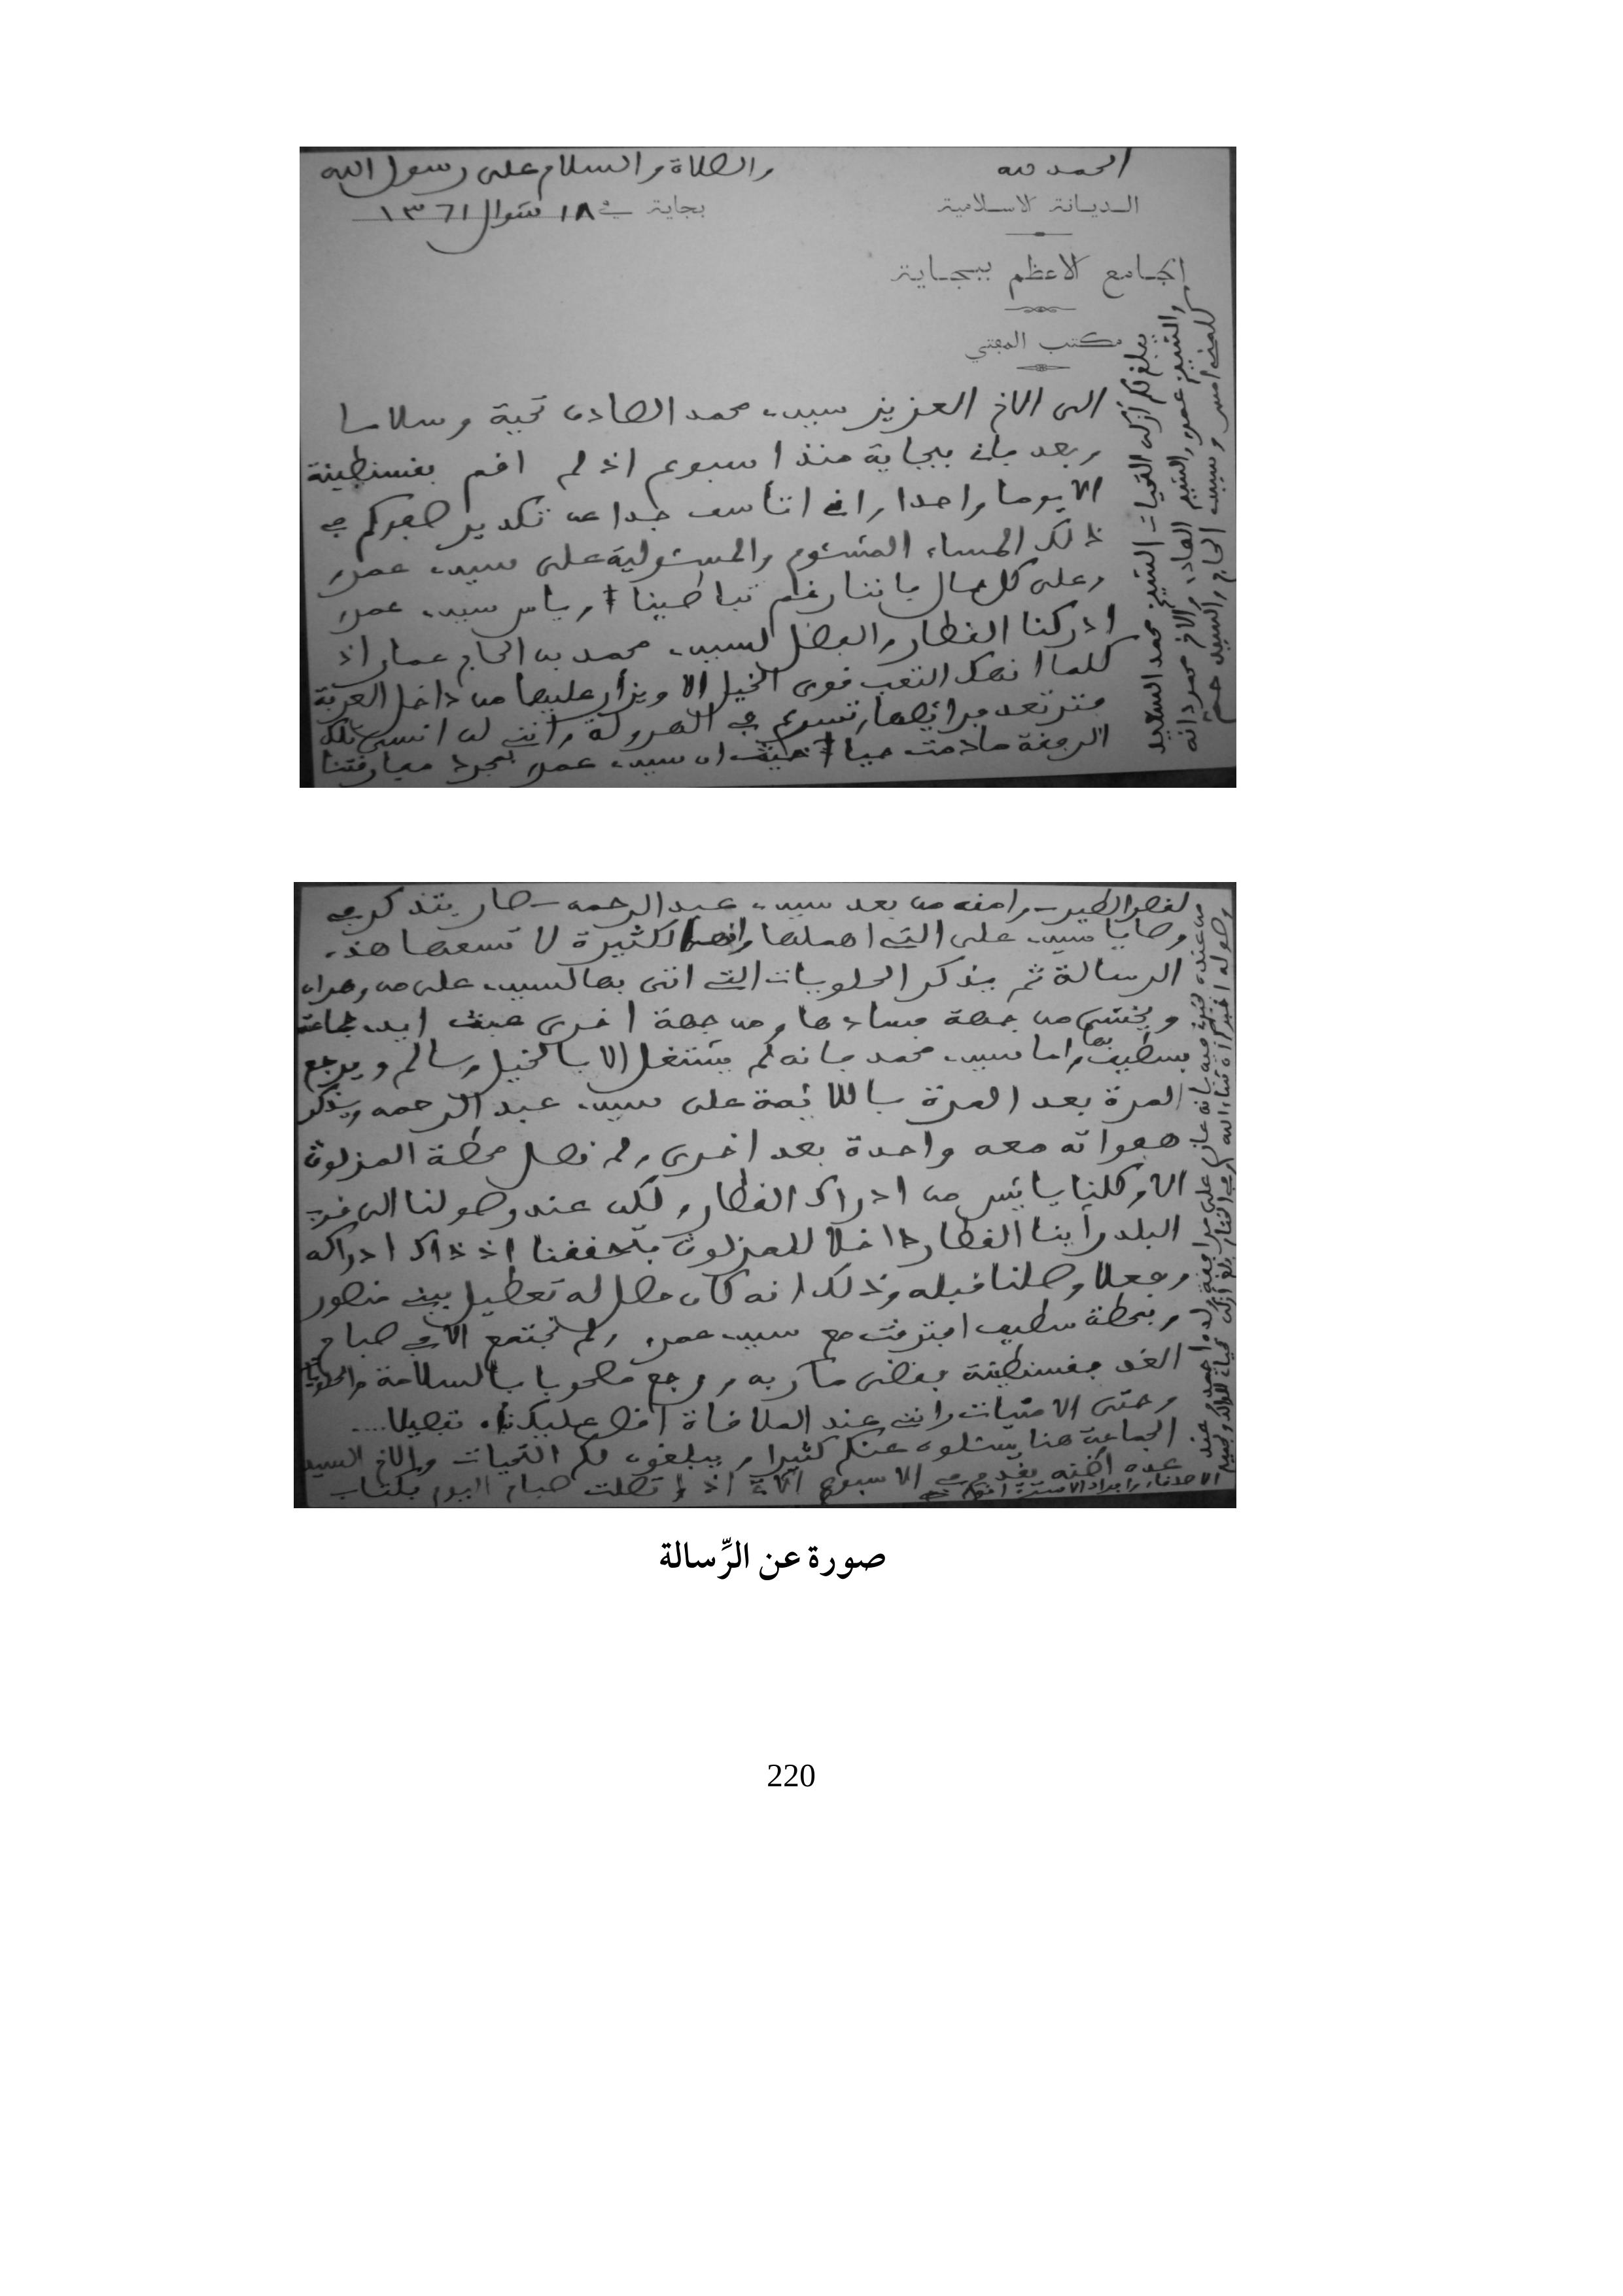 الحمد لله والصلاة والسلام على رسول الله
الديانة الاسلامية
بجاية في ١٨ شوال ١٣٦١
الجامع الاعظم ببجاية
مكتب المفتي
الى الاخ العزيز سيدي محمد الصادق تحية وسلاما
وبعد فاني ببجاية منذ اسبوع اذ لم اقم بقسنطينة
الا يوما واحدا واني اتأسف جدا عن تكدير صفوكم في
ذلك المساء المشئوم والمسئولية على سيدي عمر
وعلى كل حال فاننا رغم تباطينا وياس سيدي عمر
ادركنا القطار والفضل لسيدي محمد بن الحاج عمار اذ
كلما انهك التعب قوى الخيل الا ويزأر عليها من داخل العربة
فترتعد فرائصها وتسرع في الهرولة واني لن انسى تلك
الرفقة مادمت حيا حيث ان سيدي عمر بمجرد مفارقتنا
يبلغ لكم ازكى التحيات الشيخ محمد السعيد
والشيخ عمر والشيخ الهادي والاخ محمود انه
كلمني امس وسيدي الحاج والسيد
لقصر الطير - وامنه من بعد سيدي عبد الرحمن - صار يتذكر في
وصايا سيدي علي التي اهملها وانها لكثيرة لا تسعها هذه
الرسالة ثم يذكر الحلويات التي اتى بها لسيدي علي من وهران
ويخشى من جهة فسادها ومن جهة اخرى عبث ايدي جماعة
بسطيف بها واما سيدي محمد فانه لم يشتغل الا بالخيل وسالم ويرجع
المرة بعد المرة باللائمة على سيدي عبد الرحمن ويذكر
هفواته معه واحدة بعد اخرى ولم نصل محطة المزلوق
الا وكلنا يائس من ادراك القطار ولكن عند وصولنا الى قرب
البلد رأينا القطار داخلا للمزلوق فتحققنا اذ ذاك ادراكه
وفعلا وصلنا قبله وذلك انه كان حصل له تعطيل ببني منصور
وبمحطة سطيف افترقت مع سيدي عمر ولم نجتمع الا في صباح
الغد بقسنطينة فقضى مآربه ورجع مصحوبا بالسلامة والحلويات
وحتى الامنيات واني عند الملاقاة اقص عليكم نبأه تفصيلا....
الجماعة هنا يسئلون عنكم كثيرا ويبلغون لكم التحيات والاخ السيد
عده اظنه يقدم في الاسبوع الآتي اذ اتصلت صباح اليوم بكتاب
من عنده يخبرني فيه بانه عازم على مرافقة ولده احمد وعند
وصوله اخبركم ان شاء الله وفي الختام بلغ ازكى تحياتي للوالد ولجميع
الاصدقاء وافراد الاسرة اخوكم
صورة عن الرِّسالة
220